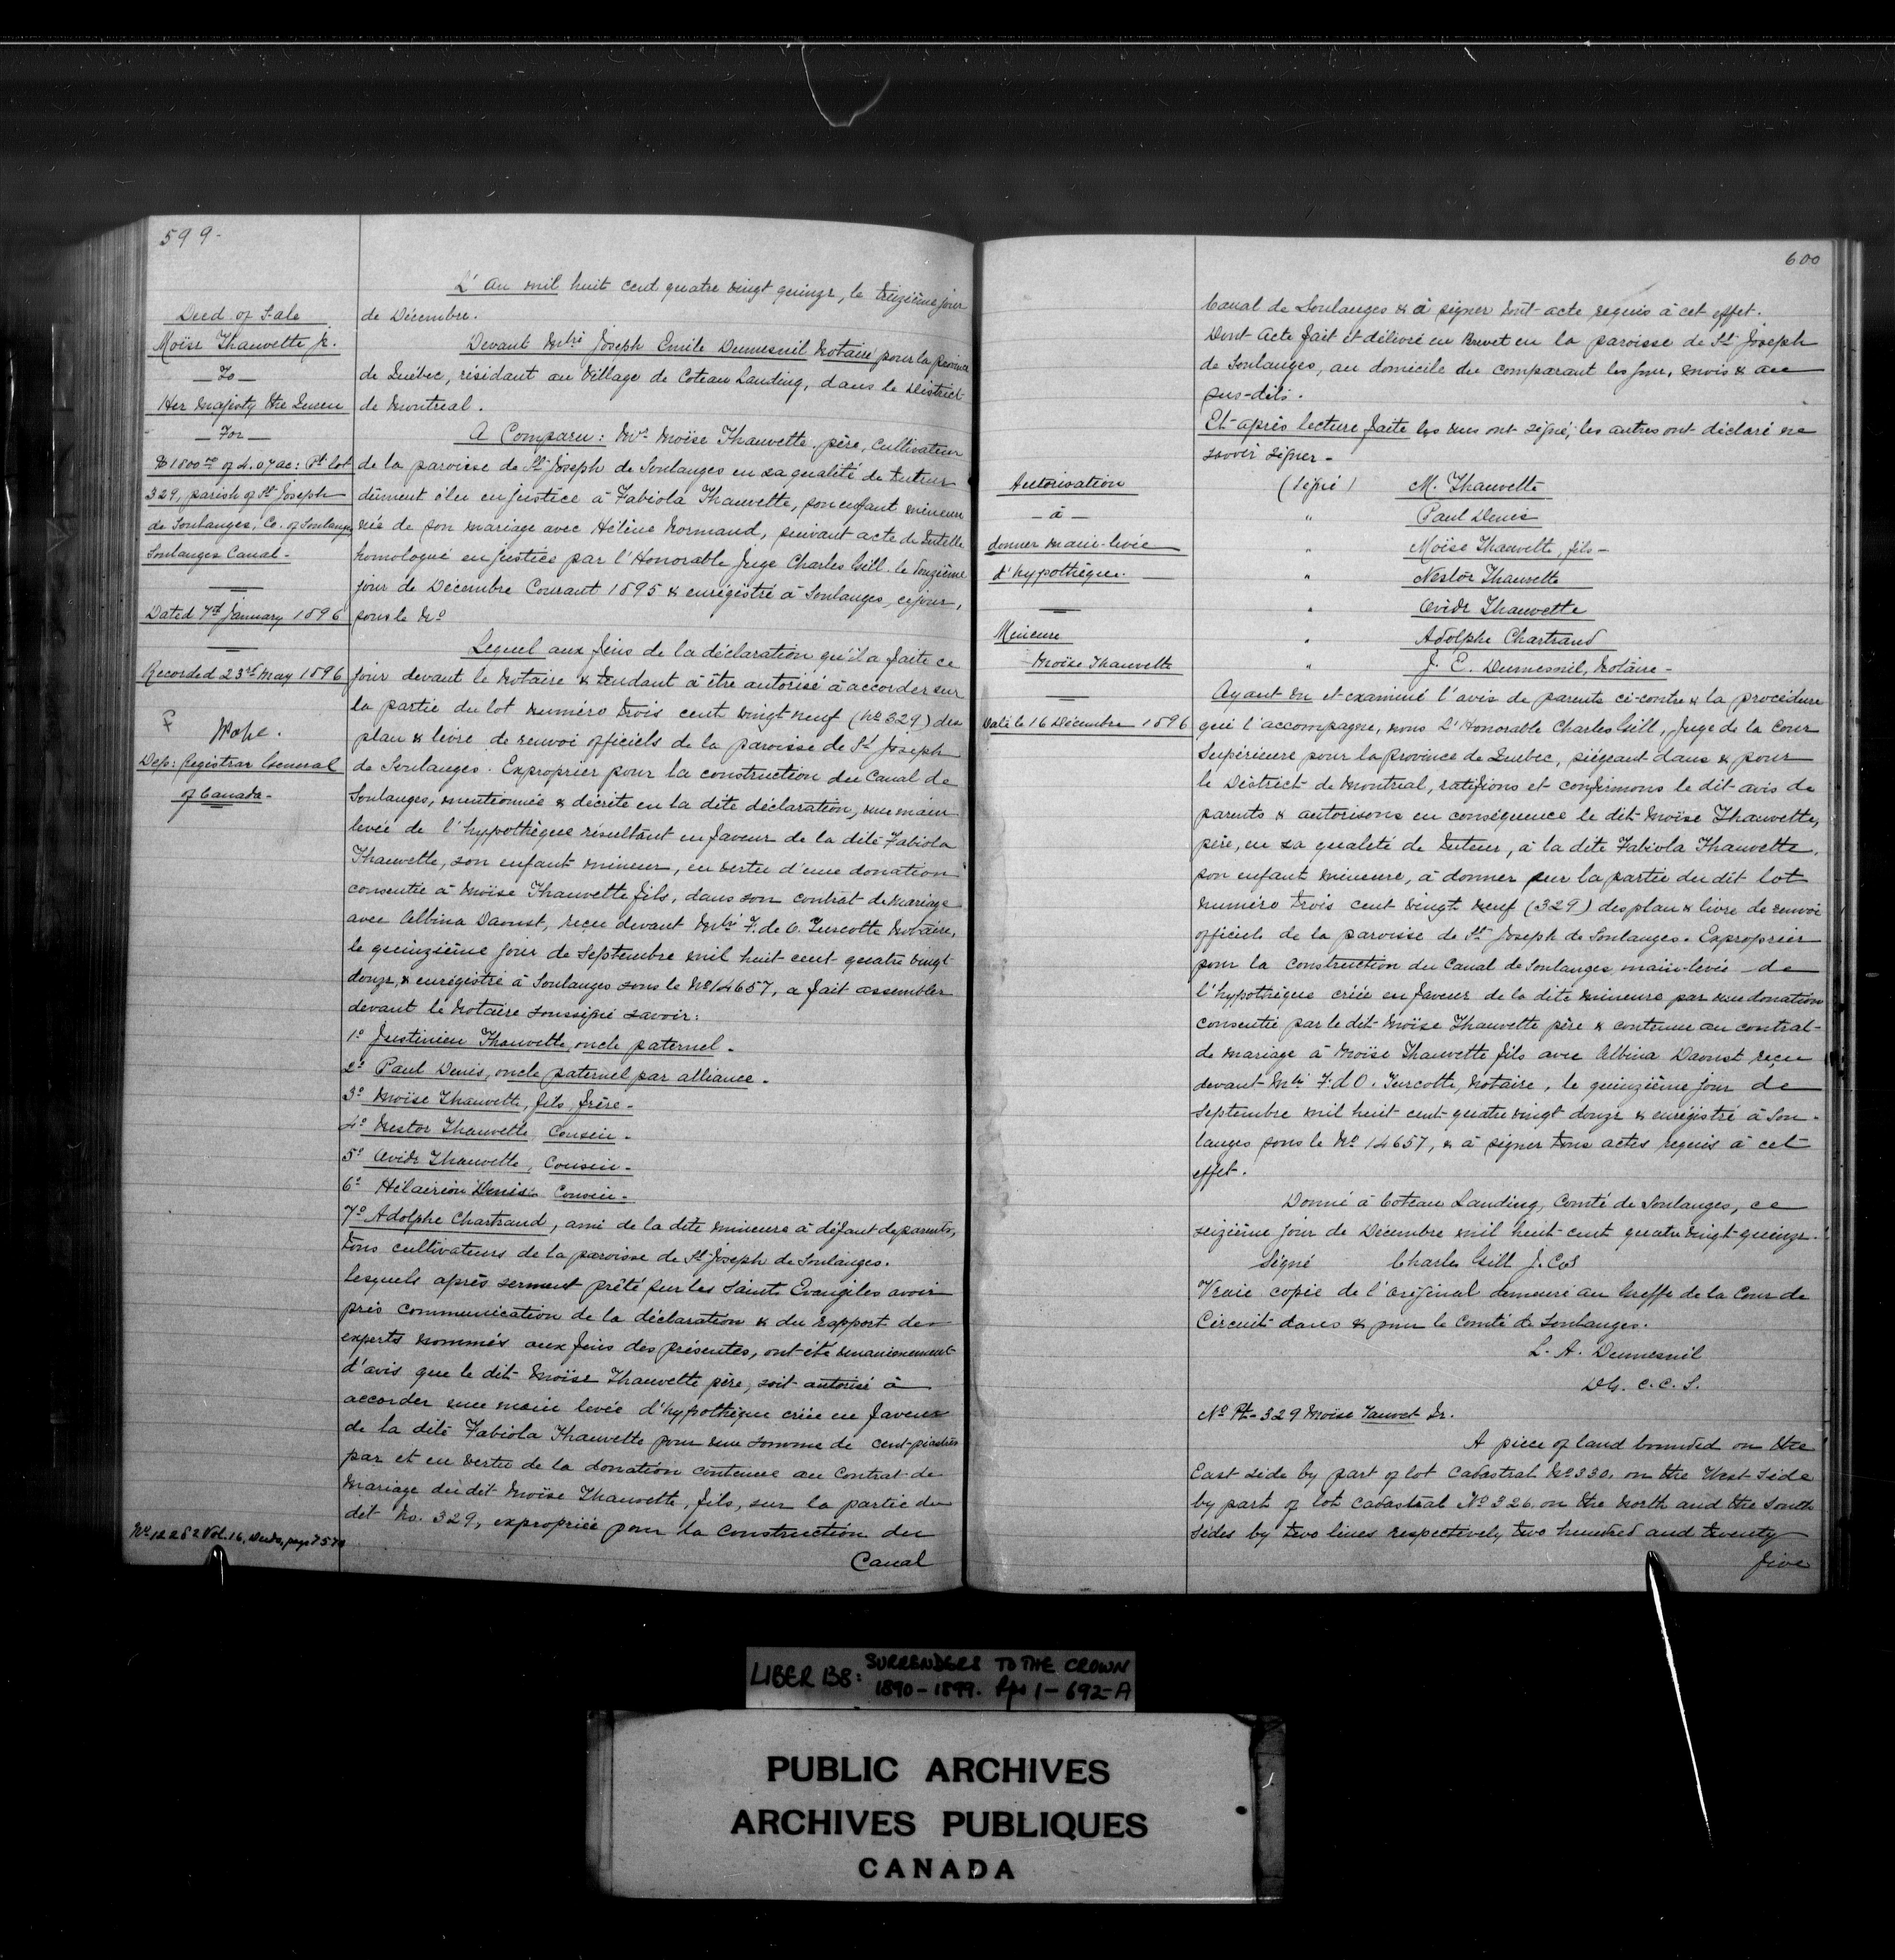 599-
Deed of Sale
Moïse Thauvette Jr.
— To —
Her Majesty the Queen
— For —
$1800.00 of 4.07 ac: Pt lot
329, parish of St Joseph
de Soulanges, Co. of Soulanges
Soulanges Canal-
Dated 7th January 1896
Recorded 23rd May 1896
Pope.
Dep: Registrar General
of Canada-
No 12282 Vol. 16, Deeds, page 757
L'an mil huit cent quatre vingt quinze, le treizième jour
de Décembre.
Devant Mtre Joseph Emile Dumesnil Notaire pour la province
de Québec, résidant au Village de Coteau Landing, dans le District
de Montreal.
A Comparu: Mr Moïse Thauvette, père, Cultivateur
de la paroisse de St Joseph de Soulanges en sa qualité de tuteur
dûment élu en justice à Fabiola Thauvette, son enfant mineure
née de son mariage avec Hélène Normand, suivant acte de tutelle
homologué en justice par l'Honorable Juge Charles Gill le douzième
jour de Décembre Courant 1895 & enrégistré à Soulanges, ce jour,
sous le No
Lequel aux fins de la déclaration qu'il a faite ce
jour devant le Notaire & tendant à être autorisé à accorder sur
la partie du lot numéro trois cent vingt neuf (No 329) des
plan & livre de renvoi officiels de la paroisse de St Joseph
de Soulanges. Exproprier pour la construction du Canal de
Soulanges, mentionnée & décrite en la dite déclaration, une main
levée de l'hyppothèque résultant en faveur de la dite Fabiola
Thauvette, son enfant mineur, en vertu d'une donation
consentie à Moïse Thauvette fils, dans son contrat de mariage
avec Albina Daoust, recu devant Mtre F. de O. Turcotte Notaire,
le quinzième jour de Septembre mil huit cent quatre vingt
douze & enrégistré à Soulanges sous le No 14657, a fait assembler
devant le Notaire soussigné savoir:
1o Justinien Thauvette, oncle paternel.
2o Paul Denis, oncle paternel par alliance.
3o Moïse Thauvette, fils, frère-
4o Nestor Thauvette, Cousin-
5o Ovide Thauvette, Cousin-
6o Hilairion Denis Cousin-
7o Adolphe Chartrand, ami de la dite mineure à défaut de parents,
tous cultivateurs de la paroisse de St Joseph de Soulanges.
Lesquels après serment prêté sur les Saints Evangiles avoir
pris communication de la déclaration & du rapport des
experts nommés aux fins des présentes, ont été unanimement
d'avis que le dit Moïse Thauvette père, soit autorisé à
accorder une main levée d'hypothèque créée en faveur
de la dite Fabiola Thauvette pour une somme de cent piastres
par et en vertu de la donation contenue au Contrat de
Mariage du dit Moïse Thauvette, fils, sur la partie du
dit No. 329, expropriée pour la construction du
Canal
600
Canal de Soulanges & à signer tout acte requis à cet effet.
Dont Acte fait et délivré en Brevet en la paroisse de St Joseph
de Soulanges, au domicile du comparant les jour, mois & an
sus-dits.
Et après lecture faite les uns ont signé, les autres ont déclaré ne
savoir signer-
(Signé) M. Thauvette
" Paul Denis
" Moïse Thauvette, fils-
" Nestor Thauvette
" Ovide Thauvette
" Adolphe Chartrand
" J. E. Dumesnil, Notaire-
Autorisation
— à —
donner main-levée
d'hypothèque.
Mineure
Moïse Thauvette
Daté le 16 Décembre 1896
Ayant vu et examiné l'avis de parents ci-contre & la procédure
qui l'accompagne, nous L'Honorable Charles Gill, Juge de la Cour
Supérieure pour la Province de Quebec, siégeant dans & pour
le District de Montreal, ratifions et confirmons le dit avis de
parents & autorisons en conséquence le dit Moïse Thauvette,
père, en sa qualité de tuteur, à la dite Fabiola Thauvette,
son enfant mineure, à donner sur la partie du dit lot
numéro trois cent vingt neuf (329) des plan & livre de renvoi
officiels de la paroisse de St Joseph de Soulanges. Exproprier
pour la construction du Canal de Soulanges, main-levée de
l'hypothèque créée en faveur de la dite mineure par une donation
consentie par le dit Moïse Thauvette père & contenue au contrat
de mariage à Moïse Thauvette fils avec Albina Daoust reçu
devant Mtre F. d O. Turcotte, Notaire, le quinzième jour de
Septembre mil huit cent quatre vingt douze & enrégistré à Sou-
langes sous le No 14657, & à signer tous actes requis à cet
effet.
Donné à Coteau Landing, Comté de Soulanges, ce
seizième jour de Décembre mil huit cent quatre vingt quinze.
Signé Charles Gill J.C.S
Vraie copie de l'original demeuré au Greffe de la Cour de
Circuit dans & pour le Comté de Soulanges.
L. A. Dumesnil
C. C. S.
No Pt-329 Moïse Jauvet Jr.
A piece of land bounded on the
East side by part of lot Cadastral No 330, on the West side
by part of lot Cadastral No 326, on the North and the South
sides by two lines respectively two hundred and twenty
five
LIBER 138: SURRENDERS TO THE CROWN
1890-1899. Pgs 1-692-A
PUBLIC ARCHIVES
ARCHIVES PUBLIQUES
CANADA